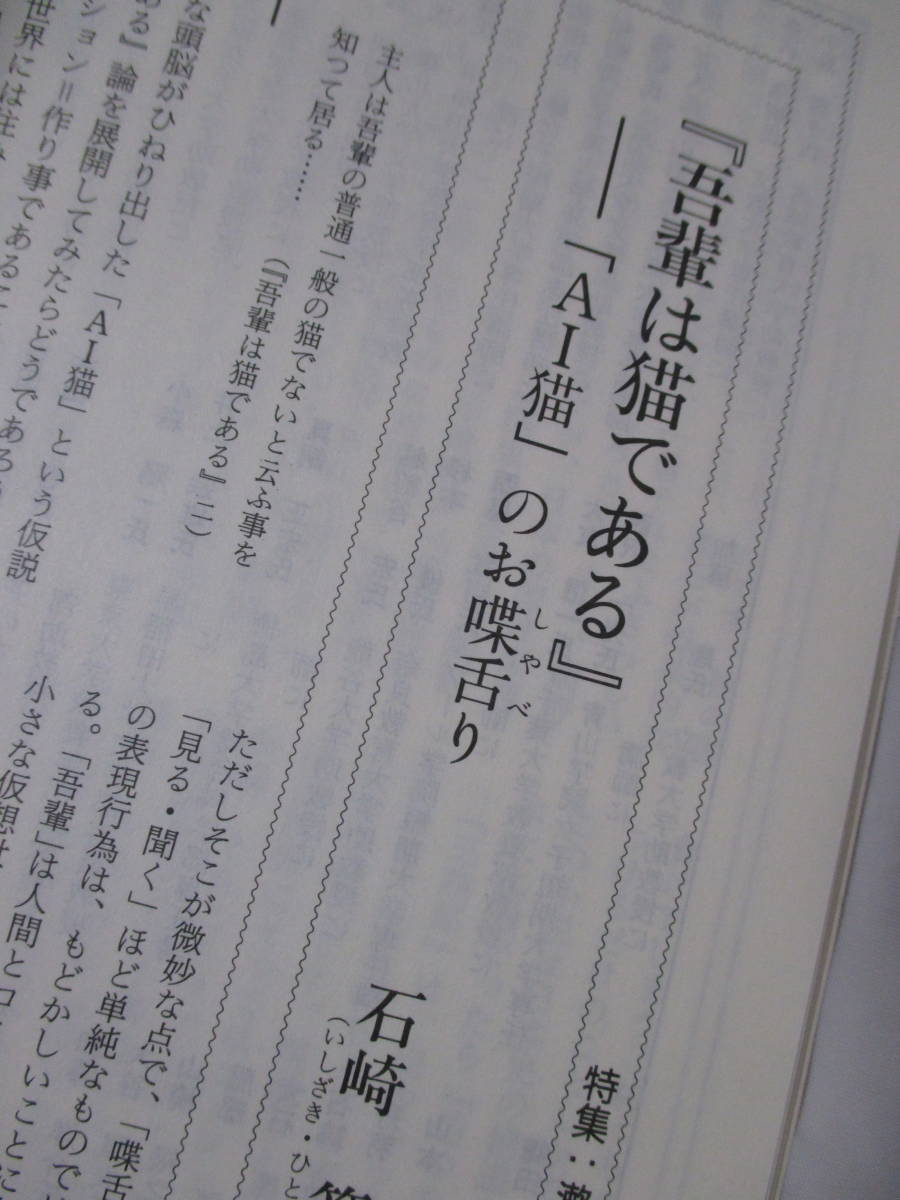 特集：漱
『吾輩は猫である』
――「ＡＩ猫」のお喋舌り
しやべ
石崎
（いしざき・ひと
主人は吾輩の普通一般の猫でないと云ふ事を
知って居る……
（『吾輩は猫である』二）
な頭脳がひねり出した「ＡＩ猫」という仮説
ある』論を展開してみたらどうであろう
ション＝作り事であるこ
世界には住み
ただしそこが微妙な点で、「喋舌
「見る・聞く」ほど単純なもので
の表現行為は、もどかしいことに
る。「吾輩」は人間とコ
小さな仮想世